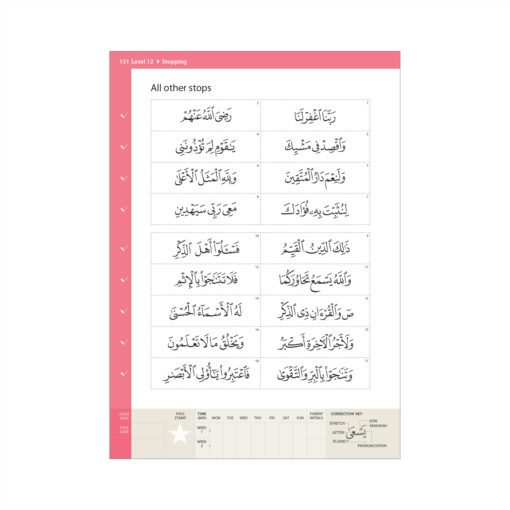 131 Level 12 ▸ Stopping
All other stops
1 رَبَّنَا ٱغْفِرْ لَنَا
2 رَضِىَ ٱللَّهُ عَنْهُمْ
3 وَٱقْصِدْ فِى مَشْيِكَ
4 يَـٰقَوْمِ لِمَ تُؤْذُونَنِى
5 وَلَنِعْمَ دَارُ ٱلْمُتَّقِينَ
6 وَلِلَّهِ ٱلْمَثَلُ ٱلْأَعْلَىٰ
7 لِنُثَبِّتَ بِهِۦ فُؤَادَكَ
8 مَعِىَ رَبِّى سَيَهْدِينِ
9 ذَٰلِكَ ٱلدِّينُ ٱلْقَيِّمُ
10 فَسْـَٔلُوٓا۟ أَهْلَ ٱلذِّكْرِ
11 وَٱللَّهُ يَسْمَعُ تَحَاوُرَكُمَآ
12 فَلَا تَتَنَـٰجَوْا۟ بِٱلْإِثْمِ
13 صٓ وَٱلْقُرْءَانِ ذِى ٱلذِّكْرِ
14 لَهُ ٱلْأَسْمَآءُ ٱلْحُسْنَىٰ
15 وَلَأَجْرُ ٱلْـَٔاخِرَةِ أَكْبَرُ
16 وَيَخْلُقُ مَا لَا تَعْلَمُونَ
17 وَتَنَـٰجَوْا۟ بِٱلْبِرِّ وَٱلتَّقْوَىٰ
18 فَٱعْتَبِرُوا۟ يَـٰٓأُو۟لِى ٱلْأَبْصَـٰرِ
START DATE
END DATE
PAGE STAMP
TIME (MIN) MON TUE WED THU FRI SAT SUN PARENT INITIALS
WEEK 1
WEEK 2
CORRECTION KEY
STRETCH
JOIN
HARAKAH
LETTER
يَسْعَىٰ
FLUENCY
PRONUNCIATION